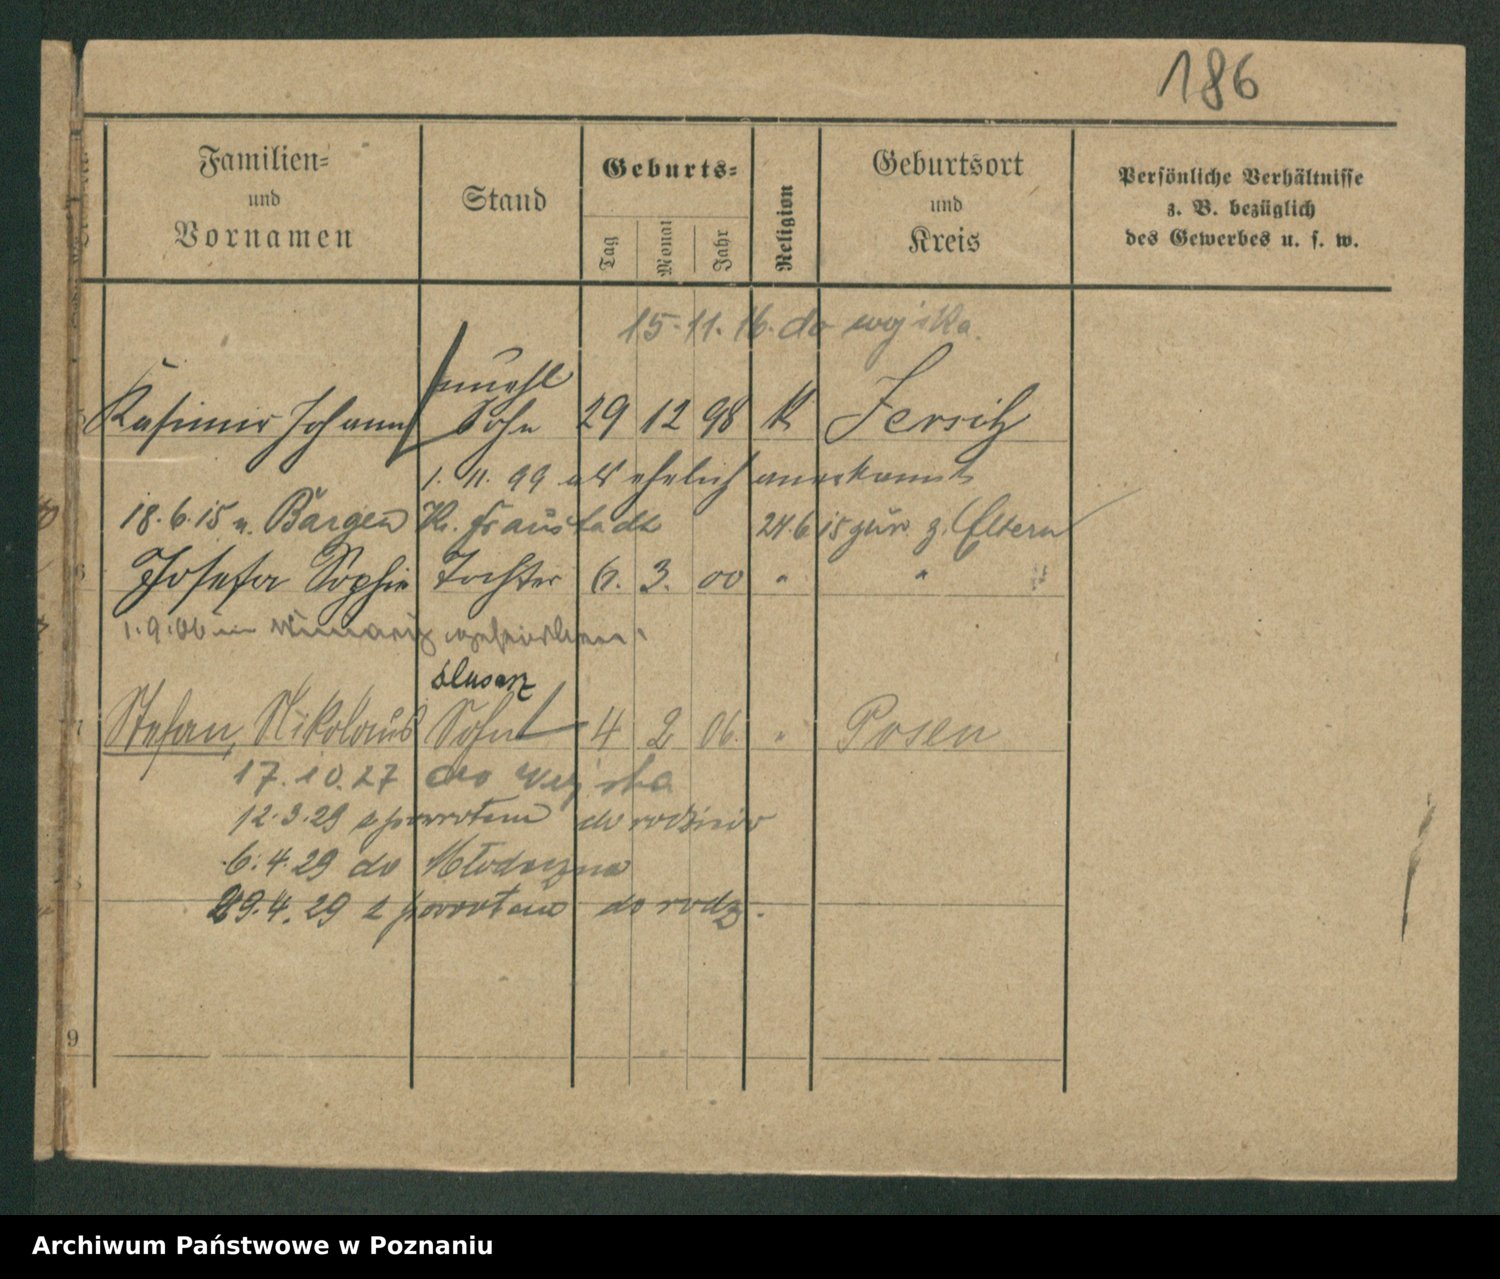 186
Familien-
und
Vornamen
Stand
Geburts-
Tag
Monat
Jahr
Religion
Geburtsort
und
Kreis
Persönliche Verhältnisse
z. B. bezüglich
des Gewerbes u. s. w.
15.11.16. do wojska.
unehl
Kasimir Johann Sohn 29 12 98 k Jersitz
1. 11. 99 als ehelich anerkannt
18.6.15 n. Bargen Kr. Fraustadt 24.6.15 zur. z. Eltern
Josefa Sophie Tochter 6. 3. 00 " "
1.9.06 in gestorben.
ślusarz
Stefan, Nikolaus Sohn 4 2 06. " Posen
17.10.27 do wojska
12.3.29 z powrotem do rodziców
6.4.29 do
29.4.29 z powrotem do rodz.
9
Archiwum Państwowe w Poznaniu